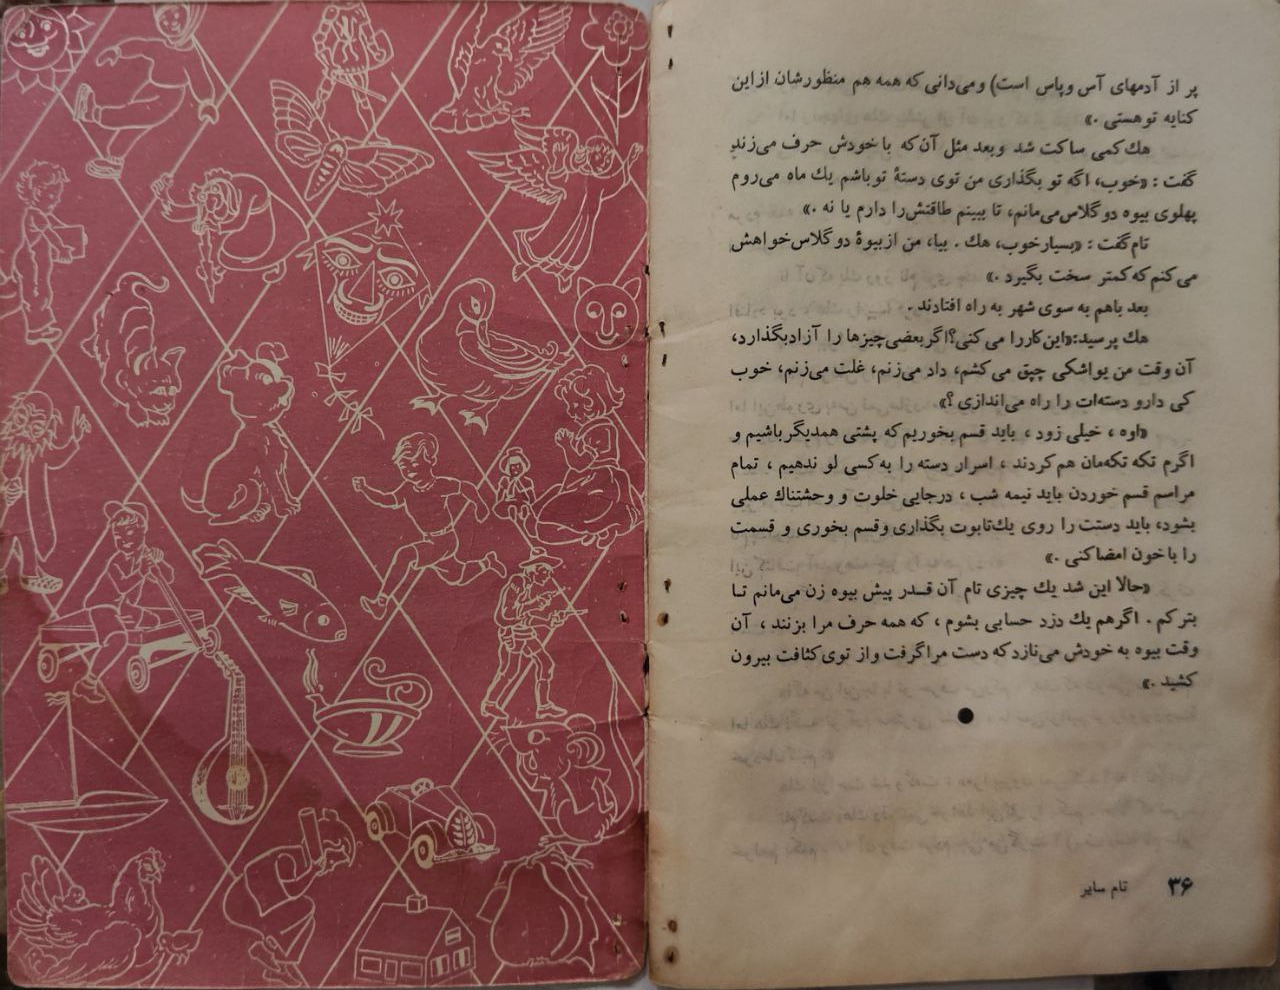 پر از آدمهای آس وپاس است) ومی‌دانی که همه هم منظورشان ازاین
کنایه توهستی .»
هك کمی ساکت شد وبعد مثل آن‌که باخودش حرف می‌زند
گفت : «خوب، اگه تو بگذاری من توی دستهٔ توباشم یك ماه می‌روم
پهلوی بیوه دوگلاس‌می‌مانم، تا ببینم طاقتش‌را دارم یا نه .»
تام‌گفت : «بسیارخوب، هك . بیا، من ازبیوهٔ دوگلاس‌خواهش
می‌کنم‌که‌کمتر سخت بگیرد .»
بعد باهم به سوی شهر به راه افتادند .
هك پرسید:«این‌کاررا می‌کنی؟اگربعضی‌چیزها را آزادبگذارد،
آن وقت من یواشکی چپق می‌کشم، داد می‌زنم، غلت می‌زنم، خوب
کی دارو دسته‌ات را راه می‌اندازی ؟»
«اوه ، خیلی زود ، باید قسم بخوریم‌که پشتی همدیگرباشیم و
اگرم تکه تکه‌مان هم‌کردند ، اسرار دسته را به‌کسی لو ندهیم ، تمام
مراسم قسم خوردن باید نیمه شب ، درجایی خلوت و وحشتناك عملی
بشود، باید دستت را روی یك‌تابوت بگذاری وقسم بخوری و قسمت
را باخون امضاکنی .»
«حالا این شد یك چیزی تام آن قـدر پیش بیوه زن می‌مانم تـا
بترکم . اگرهم یك دزد حسابی بشوم ، که همه حرف مرا بزنند ، آن
وقت بیوه به خودش می‌نازدکه دست مراگرفت واز توی‌کثافت بیرون
کشید .»
۳۶ تام سایر